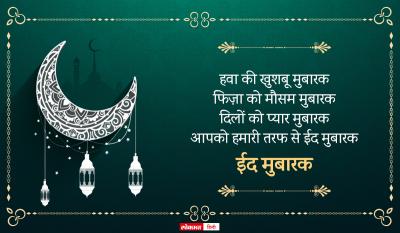 हवा की खुशबू मुबारक
फिज़ा को मौसम मुबारक
दिलों को प्यार मुबारक
आपको हमारी तरफ से ईद मुबारक
ईद मुबारक
लोकमत हिन्दी